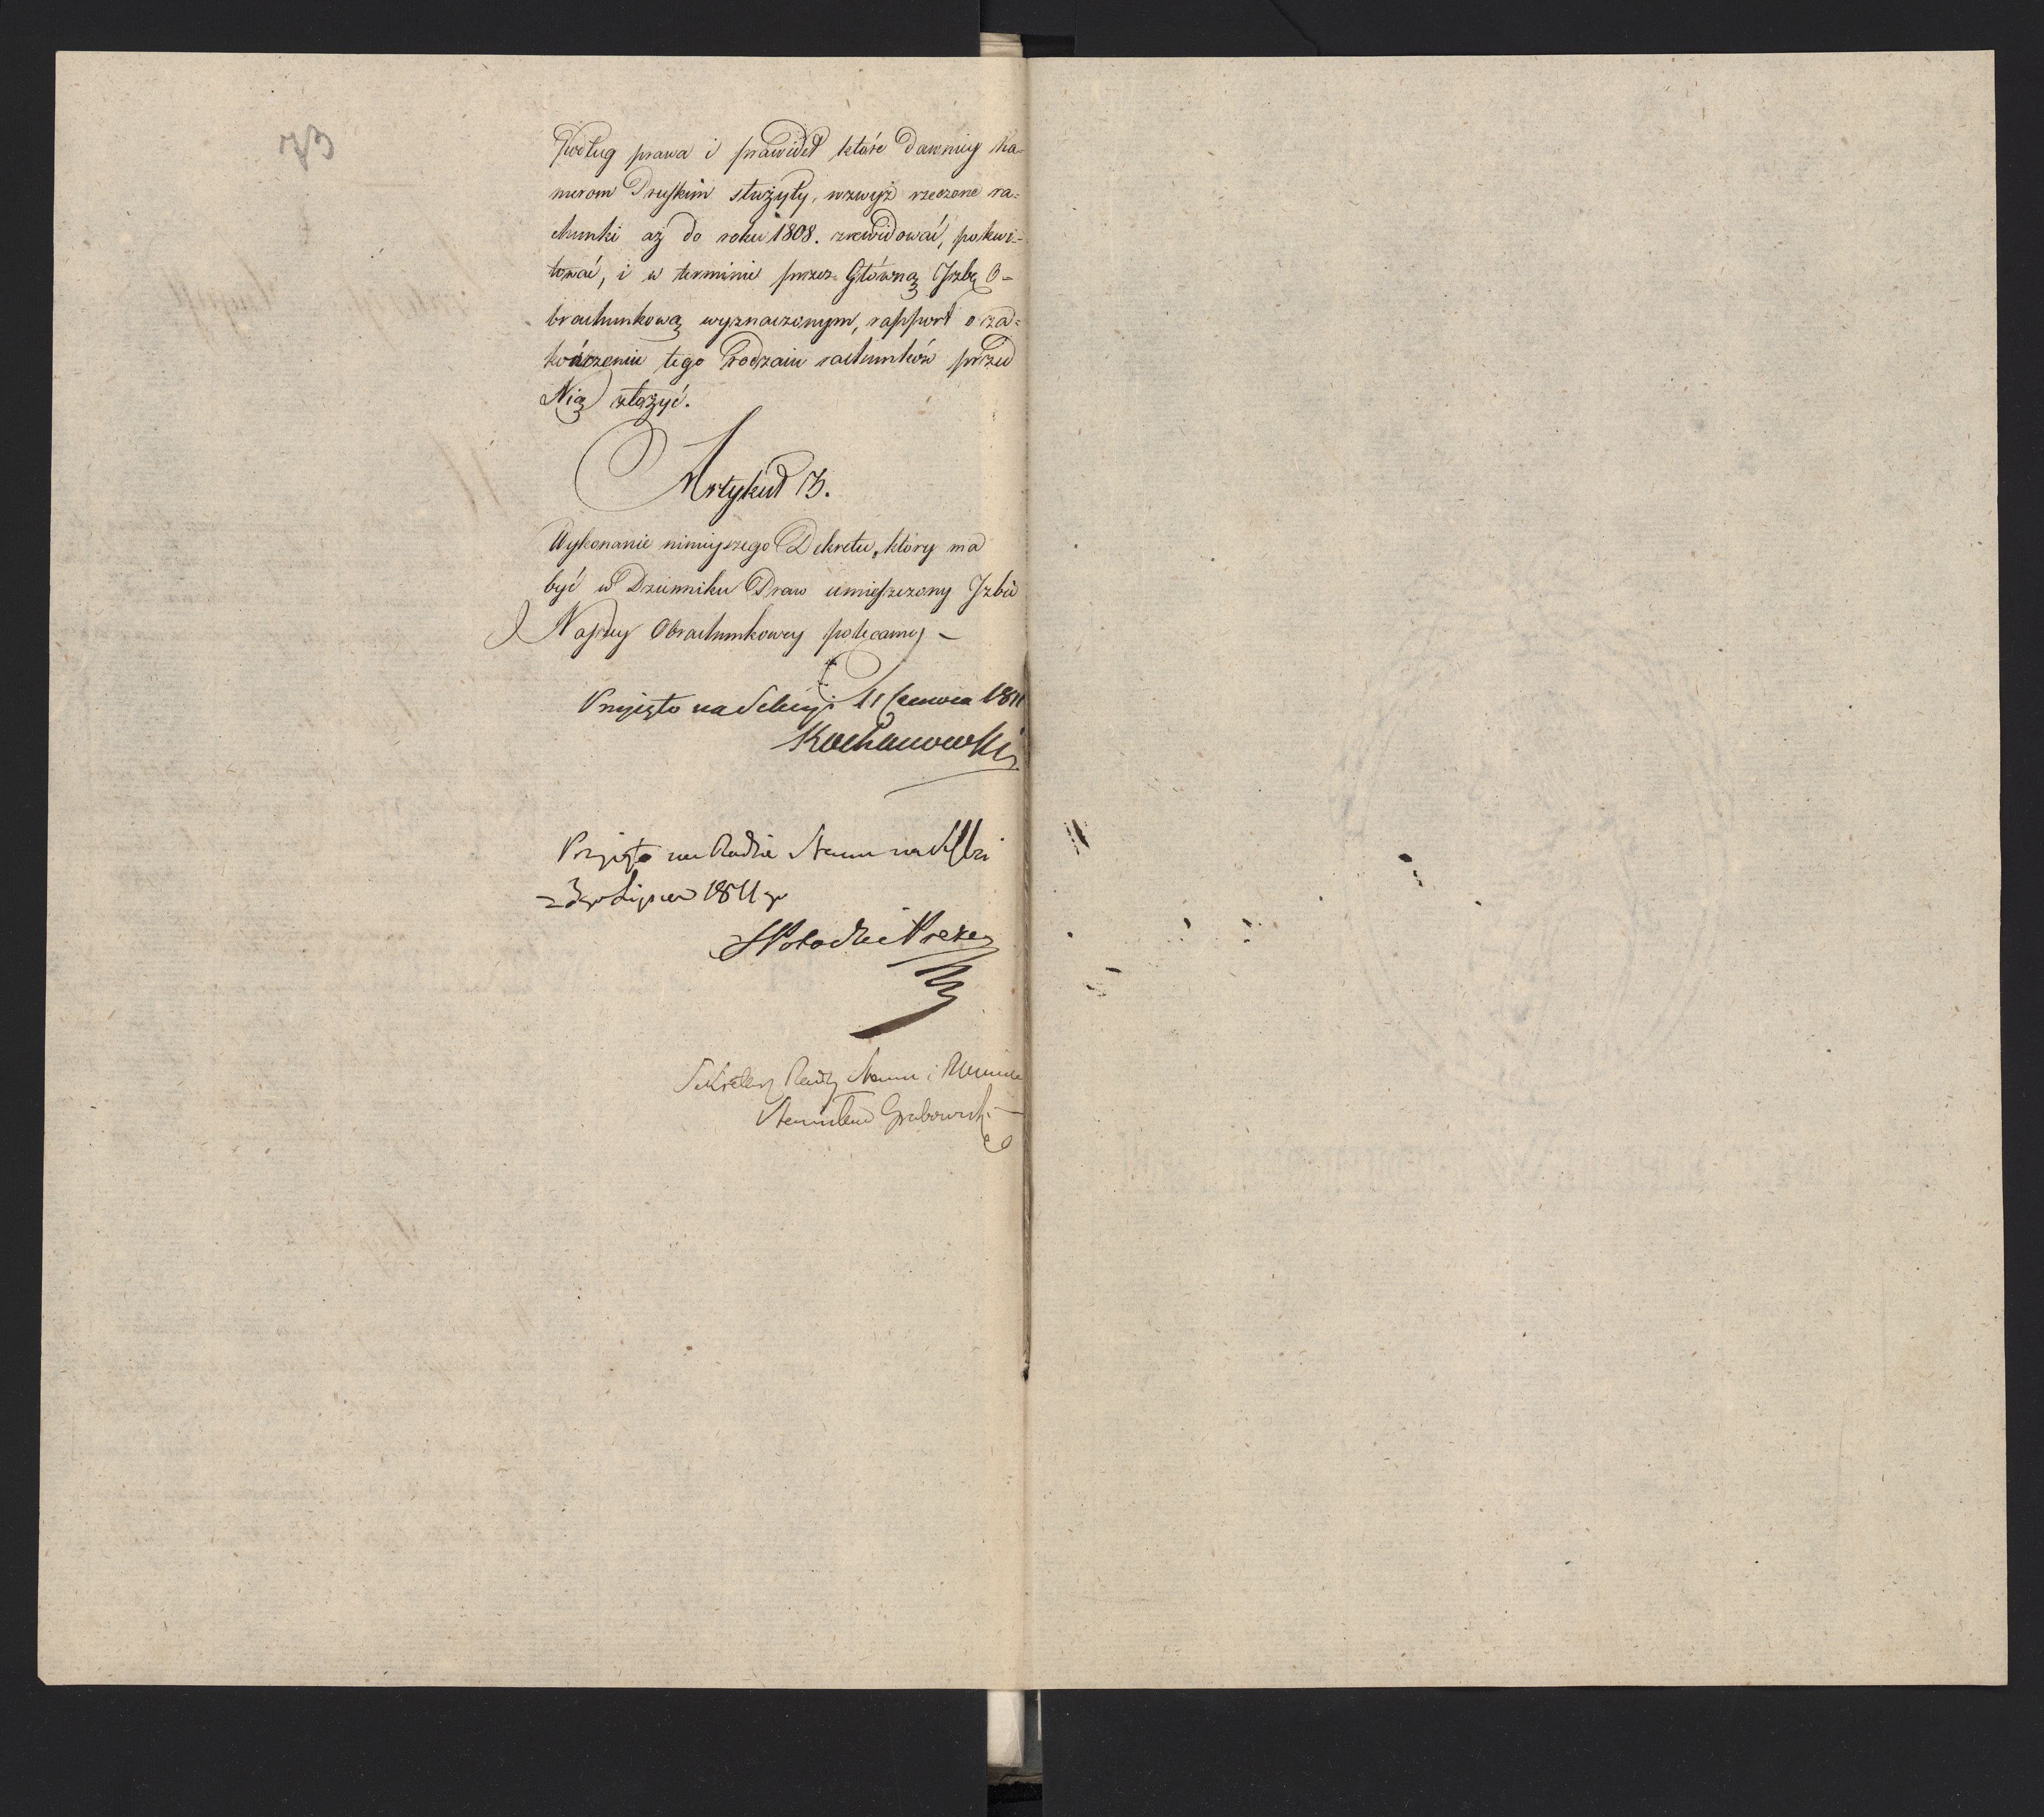 73
Podług prawa i prawideł które dawniey Ka=
merom Pruskim służyły, wzwyż rzeczone ra=
chunki aż do roku 1808. zrewidować, pokwi=
tować, i w terminie przez Główną Izbę O=
brachunkową wyznaczonym, rapport o za=
kończeniu tego rodzaiu rachunków przed
Nią złożyć.
Artykuł 13.
Wykonanie ninieyszego Dekretu, który ma
być w Dzienniku Praw umieszczony Izbie
Naszey Obrachunkowey polecamy –
Przyięto na Sekcyi 11 Czerwca 1811
Kochanowski
Przyięto na Radzie Stanu na Sessi
23go Lipca 1811 r
SPotocki Prezes
Sekretarz Rady Stanu i Ministr
Stanisław Grabowski